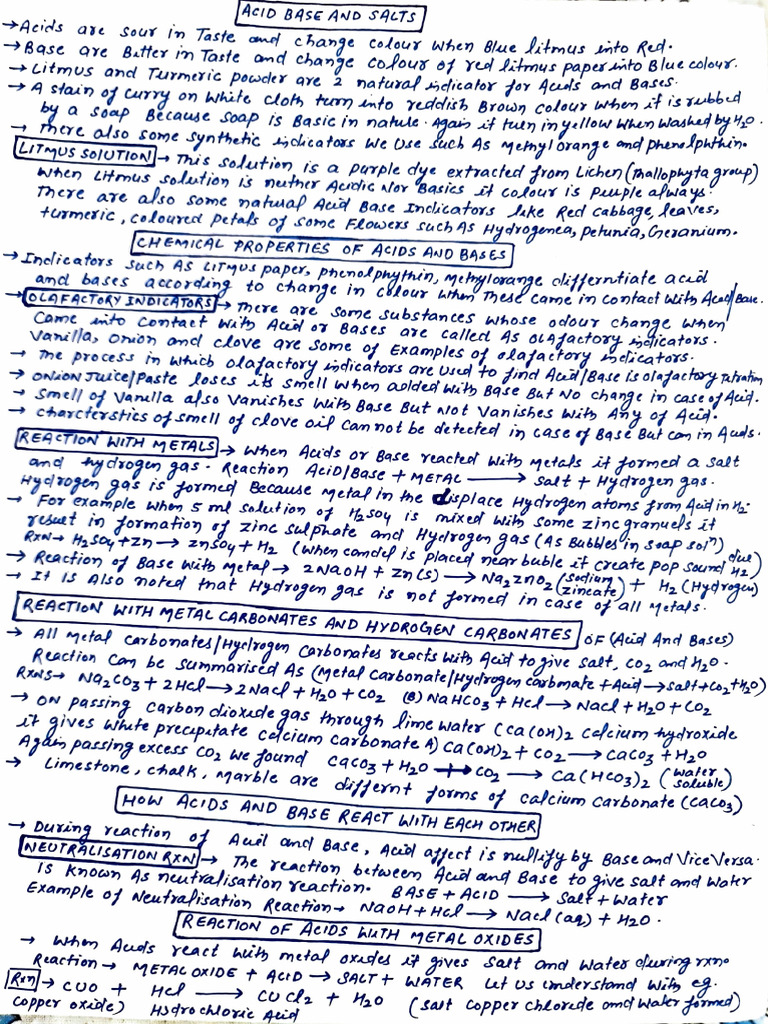 ACID BASE AND SALTS
→ Acids are sour in Taste and change colour when Blue litmus into Red.
→ Base are Bitter in Taste and change colour of red litmus paper into Blue colour.
→ Litmus and Turmeric powder are 2 natural indicator for Acids and Bases.
→ A stain of curry on white cloth turn into reddish Brown colour when it is rubbed
by a soap Because soap is Basic in nature. Again it turn in yellow when washed by H2O.
→ There also some synthetic indicators we use such As Methyl orange and phenolphthin.
LITMUS SOLUTION → This solution is a purple dye extracted from Lichen (Thallophyta group)
when Litmus solution is neither Acidic Nor Basics it colour is purple always.
There are also some natural Acid Base Indicators like Red cabbage, leaves,
turmeric, coloured petals of some Flowers such As Hydrogenea, petunia, Geranium.
CHEMICAL PROPERTIES OF ACIDS AND BASES
→ Indicators such As Litmus paper, phenolphythin, methylorange differntiate acid
and bases according to change in colour when These came in contact with Acid/Base.
→ OLAFACTORY INDICATORS → There are some substances whose odour change when
came into contact with Acid or Bases are called As olafactory indicators.
Vanilla, Onion and clove are some of Examples of olafactory indicators.
→ The process in which olafactory indicators are used to find Acid/Base is olafactory titration
→ ONION Juice/Paste loses its smell when added with Base But No change in case of Acid.
→ Smell of Vanilla also Vanishes with Base But Not Vanishes with Any of Acid.
→ charcterstics of smell of clove oil can not be detected in case of Base But can in Acids.
REACTION WITH METALS → when Acids or Base reacted with metals it formed a salt
and hydrogen gas. Reaction Acid/Base + METAL ⟶ salt + Hydrogen gas.
Hydrogen gas is formed Because metal in the displace Hydrogen atoms from Acid in H2.
→ For example when 5 ml solution of H2SO4 is mixed with some zinc granuels it
result in formation of zinc sulphate and Hydrogen gas (As Bubbles in soap solⁿ)
Rxn → H2SO4 + Zn → ZnSO4 + H2 (when candel is placed near buble it create pop sound due H2)
→ Reaction of Base with Metal → 2NaOH + Zn(s) ⟶ Na2ZnO2 (sodium zincate) + H2 (Hydrogen)
→ It is Also noted that Hydrogen gas is not formed in case of all Metals.
REACTION WITH METAL CARBONATES AND HYDROGEN CARBONATES OF (Acid And Bases)
→ All Metal carbonates/Hydrogen Carbonates reacts with Acid to give salt, CO2 and H2O.
Reaction can be summarised As (Metal carbonate/Hydrogen carbonate + Acid → salt + CO2 + H2O)
Rxns → Na2CO3 + 2HCl ⟶ 2NaCl + H2O + CO2 (B) NaHCO3 + HCl ⟶ NaCl + H2O + CO2
→ ON passing carbon dioxide gas through lime water (Ca(OH)2 calcium hydroxide
it gives white precipitate calcium carbonate A) Ca(OH)2 + CO2 ⟶ CaCO3 + H2O
Again passing excess CO2 we found CaCO3 + H2O + CO2 ⟶ Ca(HCO3)2 (water soluble)
→ Limestone, chalk, marble are differnt forms of calcium carbonate (CaCO3)
HOW ACIDS AND BASE REACT WITH EACH OTHER
→ During reaction of Acid and Base, Acid affect is nullify by Base and Vice Versa.
NEUTRALISATION RXN → The reaction between Acid and Base to give salt and water
is known As neutralisation reaction. BASE + ACID ⟶ Salt + Water
Example of Neutralisation Reaction → NaOH + HCl ⟶ NaCl (aq) + H2O.
REACTION OF ACIDS WITH METAL OXIDES
→ when Acids react with metal oxides it gives salt and water during rxn.
Reaction → METAL OXIDE + ACID → SALT + WATER Let us understand with eg.
Rxn → CUO + HCl ⟶ CUCl2 + H2O (salt copper chloride and water formed)
copper oxide) Hydrochloric Acid